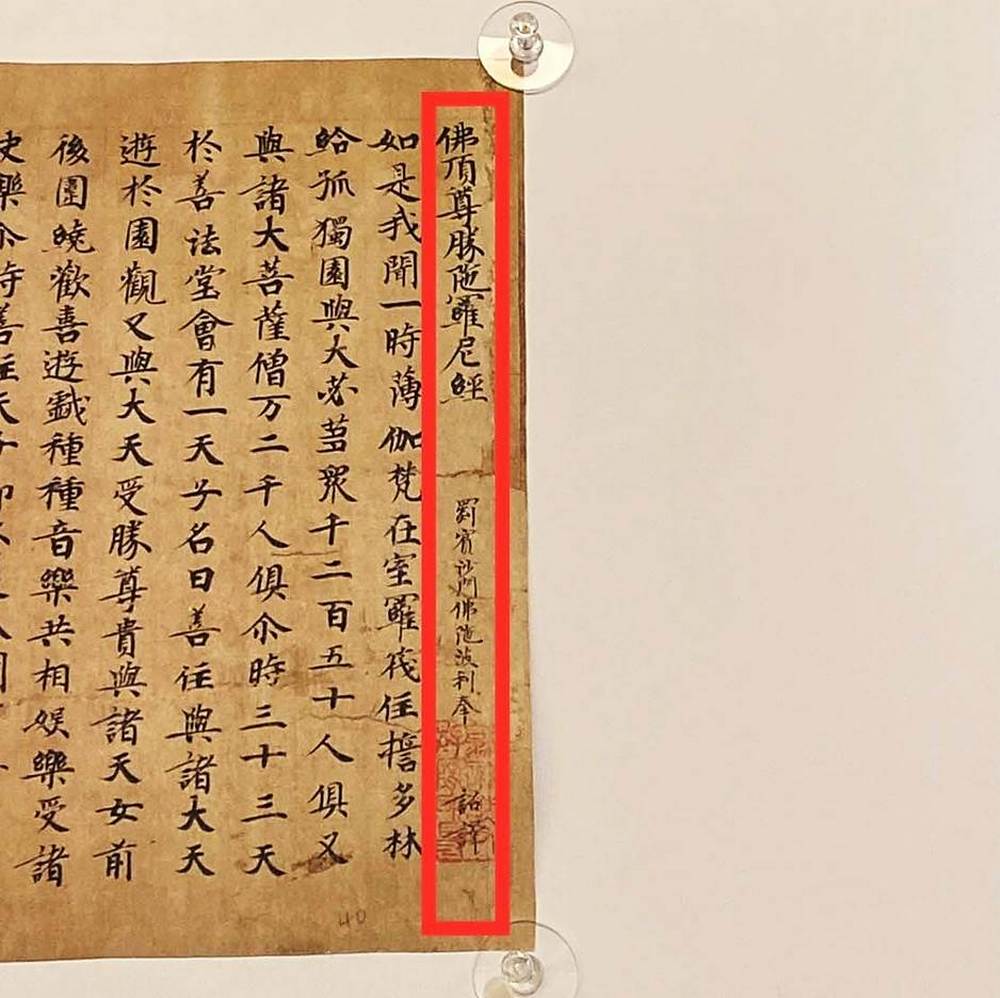 佛頂尊勝陁羅尼經 罽賓沙門佛陁波利奉 詔譯
如是我聞一時薄伽梵在室羅筏住誓多林
給孤獨園與大苾蒭衆千二百五十人俱又
與諸大菩薩僧万二千人俱尒時三十三天
於善法堂會有一天子名曰善住與諸大天
遊於園觀又與大天受勝尊貴與諸天女前
後圍繞歡喜遊戲種種音樂共相娛樂受諸
快樂尒時善住天子即
40